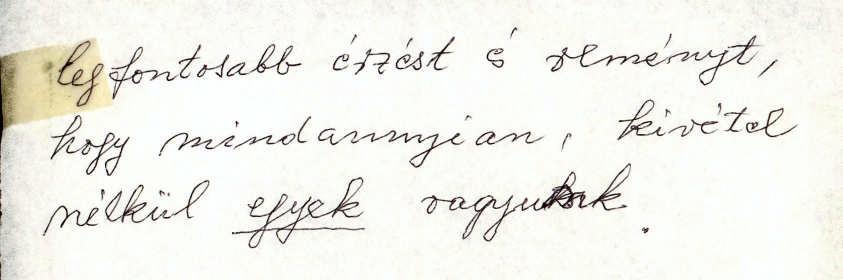 legfontosabb érzést és reményt,
hogy mindannyian, kivétel
nélkül egyek vagyunk.